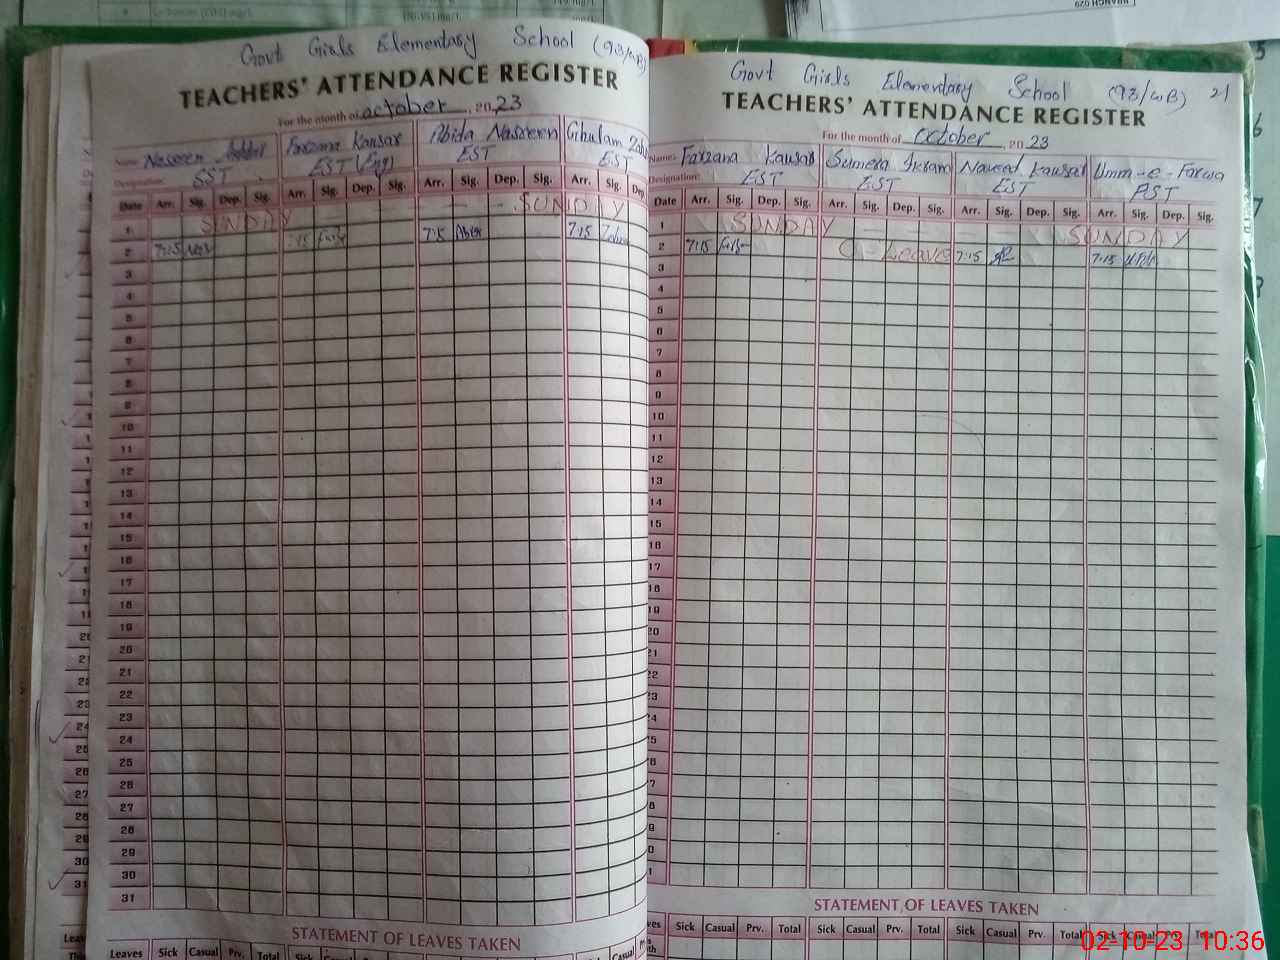 Govt Girls Elementary School (93/WB)
TEACHERS' ATTENDANCE REGISTER
For the month of october, 2023
Name: Nasreen
Farzana Kausar
Abida Nasreen
Ghulam
Designation: SST
EST (Eng)
EST
EST
Date Arr. Sig. Dep. Sig. Arr. Sig. Dep. Sig. Arr. Sig. Dep. Sig. Arr. Sig. Dep
1 SUNDAY SUNDAY
2 7:15 7:15 7:15
3
4
5
6
7
8
9
10
11
12
13
14
15
16
17
18
19
20
21
22
23
24
25
26
27
28
29
30
31
STATEMENT OF LEAVES TAKEN
Leaves Sick Casual Prv. Total
Govt Girls Elementary School (93/WB) 21
TEACHERS' ATTENDANCE REGISTER
For the month of October, 2023
Names: Farzana Kausar
Sumera Ikram
Naveed Kausar
Umm-e-Farwa
Designation: EST
EST
EST
PST
Date Arr. Sig. Dep. Sig. Arr. Sig. Dep. Sig. Arr. Sig. Dep. Sig. Arr. Sig. Dep. Sig.
1 SUNDAY SUNDAY
2 7:15 C-Leave 7:15 7:15
3
4
5
6
7
8
9
10
11
12
13
14
15
16
17
18
19
20
21
22
23
STATEMENT OF LEAVES TAKEN
Sick Casual Prv. Total Sick Casual Prv. Total Sick Casual Prv. Total Sick
02-10-23 10:36